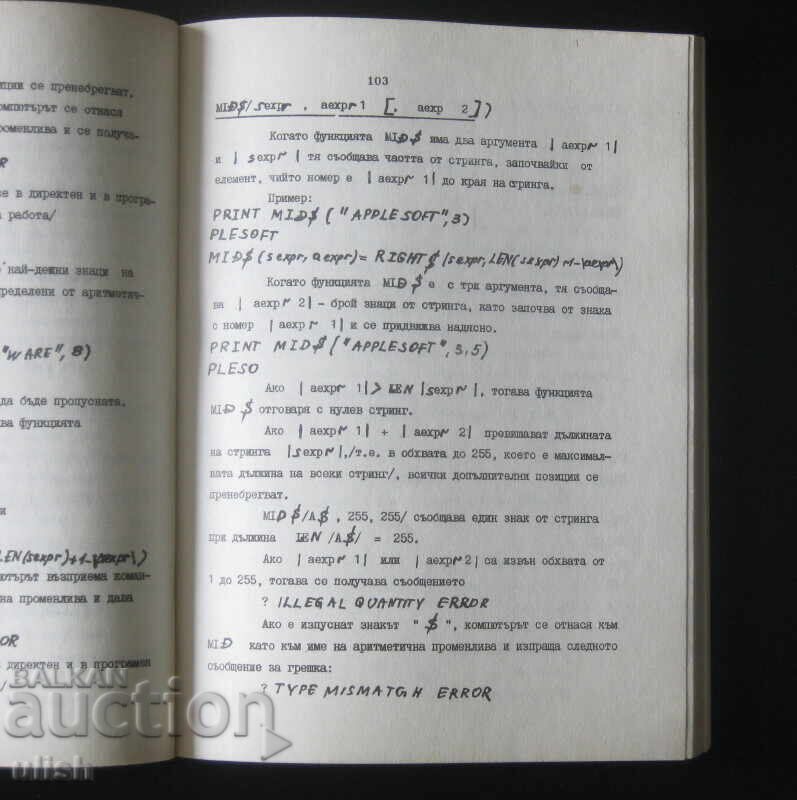 ции се пренебрегват.
компютърът се отнася
променлива и се получа-
R
се в директен и в програ-
а работа/
най-дешни знаци на
ределени от аритметич-
"WARE", 8)
да бъде пропусната.
ва функцията
и
LEN(sexpr)+1-\aexpr\)
компютърът възприема коман-
на променлива и дава
OR
директен и в програмен
103
MID$/sexpr , aexpr 1 [, aexp 2])
Когато функцията MID$ има два аргумента | aexpr 1|
и | sexpr | тя съобщава чаотта от стринга, започвайки от
елемент, чийто номер е | aexpr 1| до края на стринга.
Пример:
PRINT MID$ ("APPLESOFT",3)
PLESOFT
MID$(sexpr, aexpr)= RIGHT$/sexpr,LEN(sexpr)+1-\aexpr\)
Когато функцията MID$ е с три аргумента, тя съобща-
ва | aexpr 2| - брой знаци от стринга, като започва от знака
с номер | aexpr 1| и се придвижва надясно.
PRINT MID$ ("APPLESOFT",3,5)
PLESO
Ако | aexpr 1| > LEN |sexpr|, тогава функцията
MID $ отговаря с нулев стринг.
Ако | aexpr 1| + | aexpr 2| превишават дължината
на стринга |sexpr|,/т.е. в обхвата до 255, което е максимал-
ната дължина на всеки стринг/, всички допълнителни позиции се
пренебрегват.
MID$/A$ , 255, 255/ съобщава един знак от стринга
при дължина LEN /A$/ = 255.
Ако | aexpr 1| или | aexpr 2| са извън обхвата от
1 до 255, тогава се получава съобщението
? ILLEGAL QUANTITY ERROR
Ако е изпуснат знакът " $ ", компютърът се отнася към
MID като към име на аритметична променлива и изпраща следното
съобщение за грешка:
? TYPE MISMATGH ERROR
BALKAN
auction
ulish